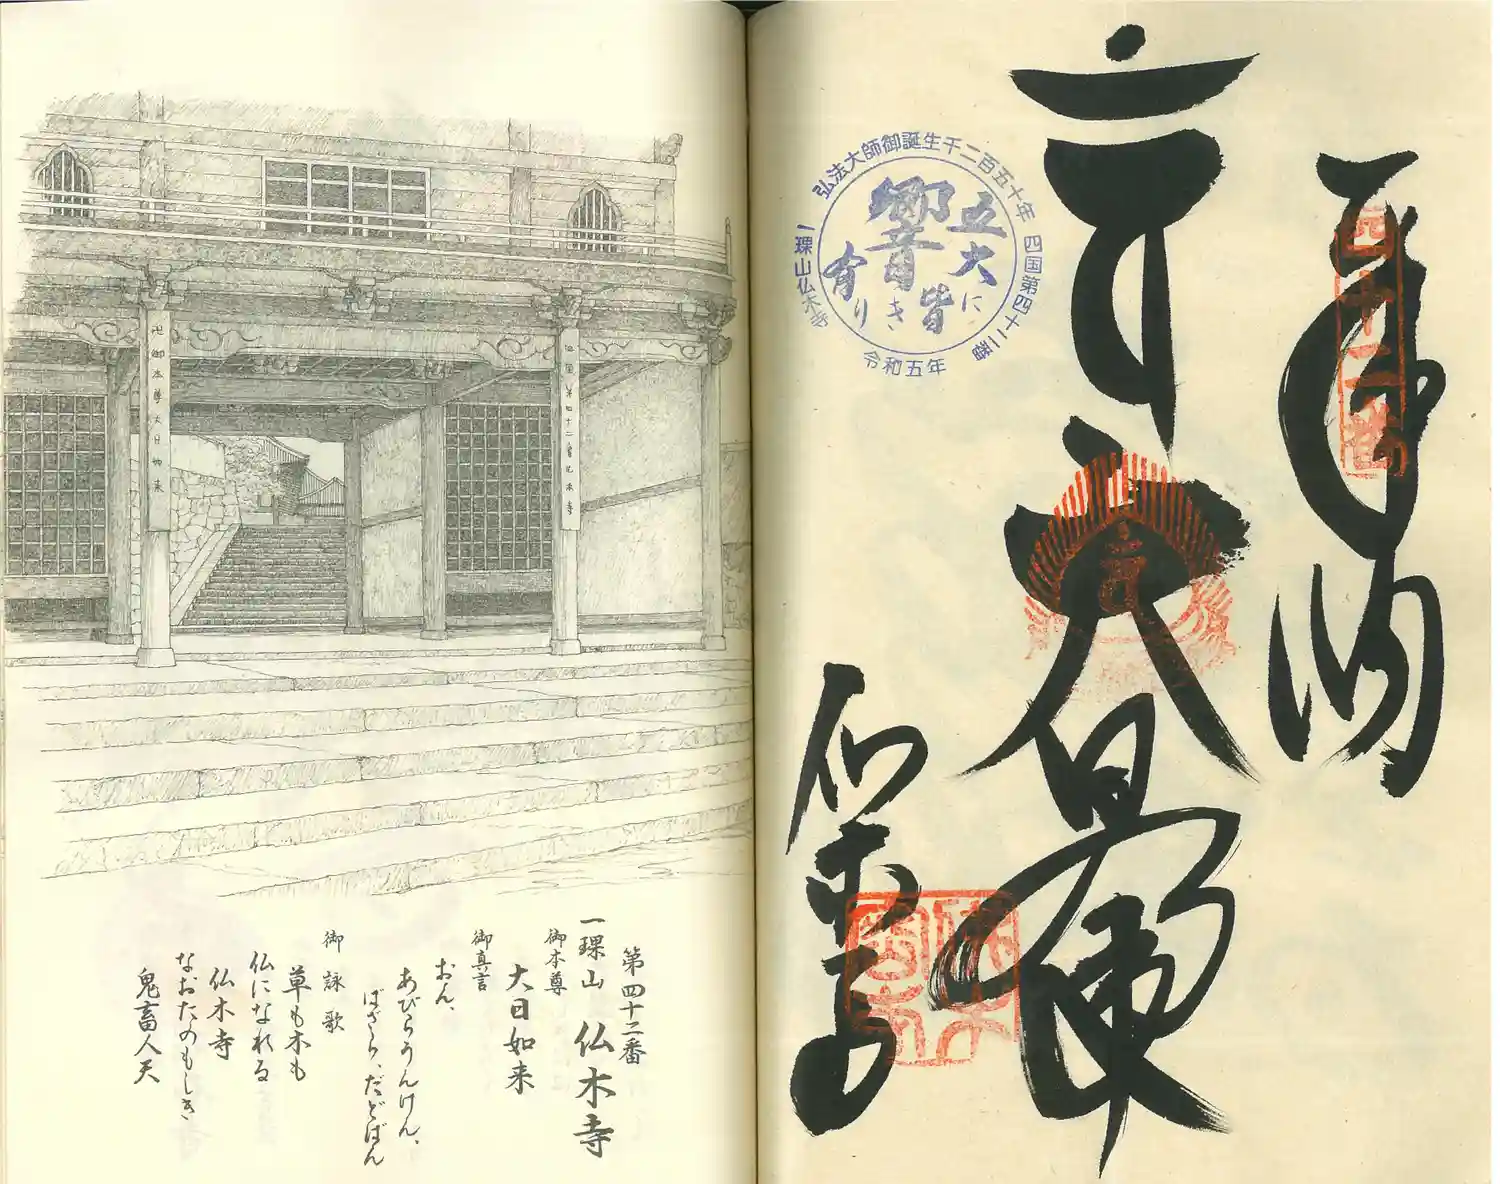 奉納
四十二番
大日
仏木寺
弘法大師御誕生千二百五十年
四国第四十二番
一山仏木寺
令和五年
五大に
皆
響き
有り
四国第四十二番仏木寺
卍御本尊大日如来
第四十二番
一山 仏木寺
御本尊
大日如来
御真言
おん、
あびらうんけん、
ばざら、だどばん
御詠歌
草も木も
仏になれる
仏木寺
なおたのもしき
鬼畜人天